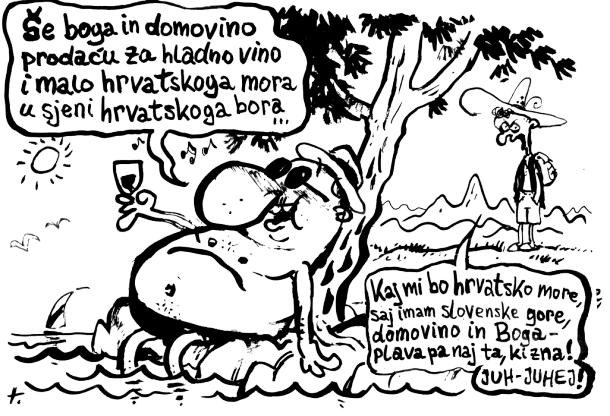 Še boga in domovino
prodaću za hladno vino
i malo hrvatskoga mora
u sjeni hrvatskoga bora...
Kaj mi bo hrvatsko more,
saj imam slovenske gore,
domovino in Boga-
plava pa naj ta, ki zna!
JUH-JUHEJ!